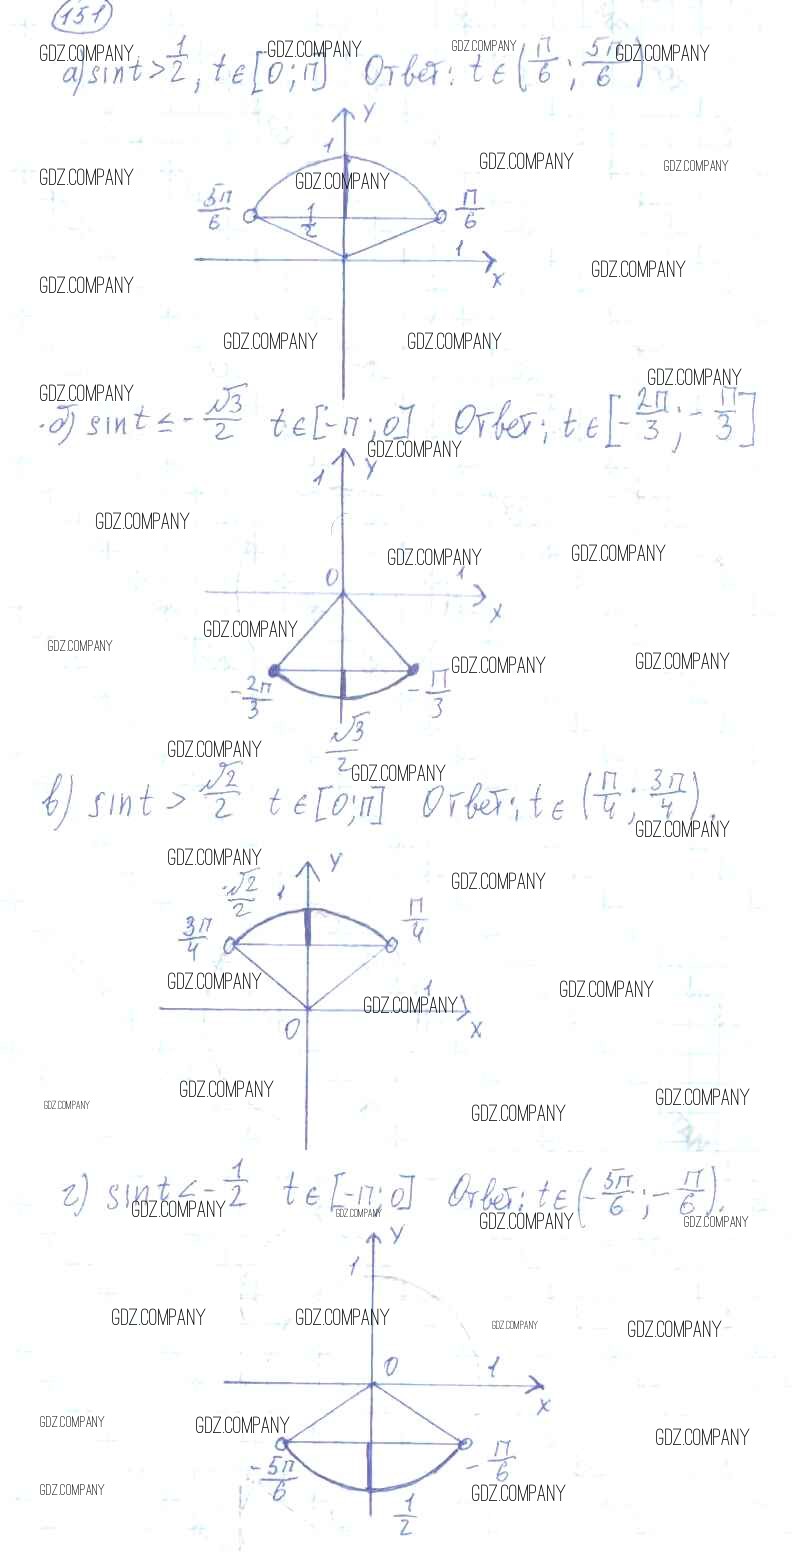 151
GDZ.COMPANY GDZ.COMPANY GDZ.COMPANY GDZ.COMPANY
а) sin t > 1/2, t ∈ [0; π] Ответ: t ∈ (π/6; 5π/6)
y
1
GDZ.COMPANY GDZ.COMPANY
GDZ.COMPANY GDZ.COMPANY
5π/6 1/2 π/6
1
x
GDZ.COMPANY GDZ.COMPANY
GDZ.COMPANY GDZ.COMPANY
GDZ.COMPANY
GDZ.COMPANY
б) sin t ≤ -√3/2 t ∈ [-π; 0] Ответ: t ∈ [-2π/3; -π/3]
GDZ.COMPANY
1 y
GDZ.COMPANY
GDZ.COMPANY GDZ.COMPANY
0 1
x
GDZ.COMPANY
GDZ.COMPANY
GDZ.COMPANY GDZ.COMPANY
-2π/3 -π/3
√3/2
GDZ.COMPANY
GDZ.COMPANY
в) sin t > √2/2 t ∈ [0; π] Ответ: t ∈ (π/4; 3π/4).
GDZ.COMPANY
GDZ.COMPANY y
√2/2 1
GDZ.COMPANY
3π/4 π/4
GDZ.COMPANY GDZ.COMPANY
1
GDZ.COMPANY
0 x
GDZ.COMPANY GDZ.COMPANY
GDZ.COMPANY GDZ.COMPANY
г) sin t < -1/2 t ∈ [-π; 0] Ответ: t ∈ (-5π/6; -π/6).
GDZ.COMPANY GDZ.COMPANY GDZ.COMPANY GDZ.COMPANY
y
1
GDZ.COMPANY GDZ.COMPANY GDZ.COMPANY GDZ.COMPANY
0 1
x
GDZ.COMPANY GDZ.COMPANY GDZ.COMPANY
-5π/6 -π/6
GDZ.COMPANY GDZ.COMPANY
1/2